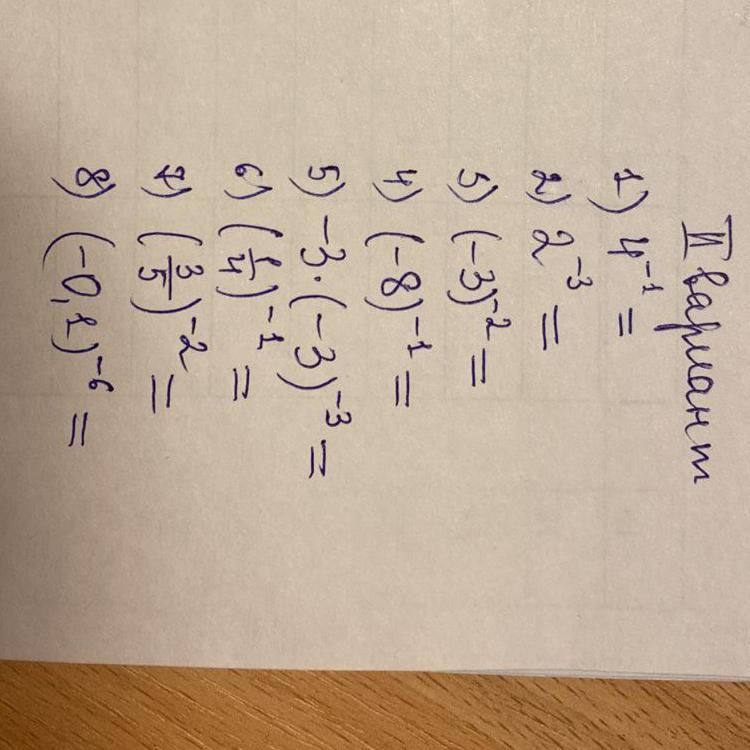 II вариант
1) 4^-1 =
2) 2^-3 =
3) (-3)^-2 =
4) (-8)^-1 =
5) -3·(-3)^-3 =
6) (1/4)^-1 =
7) (3/5)^-2 =
8) (-0,1)^-6 =